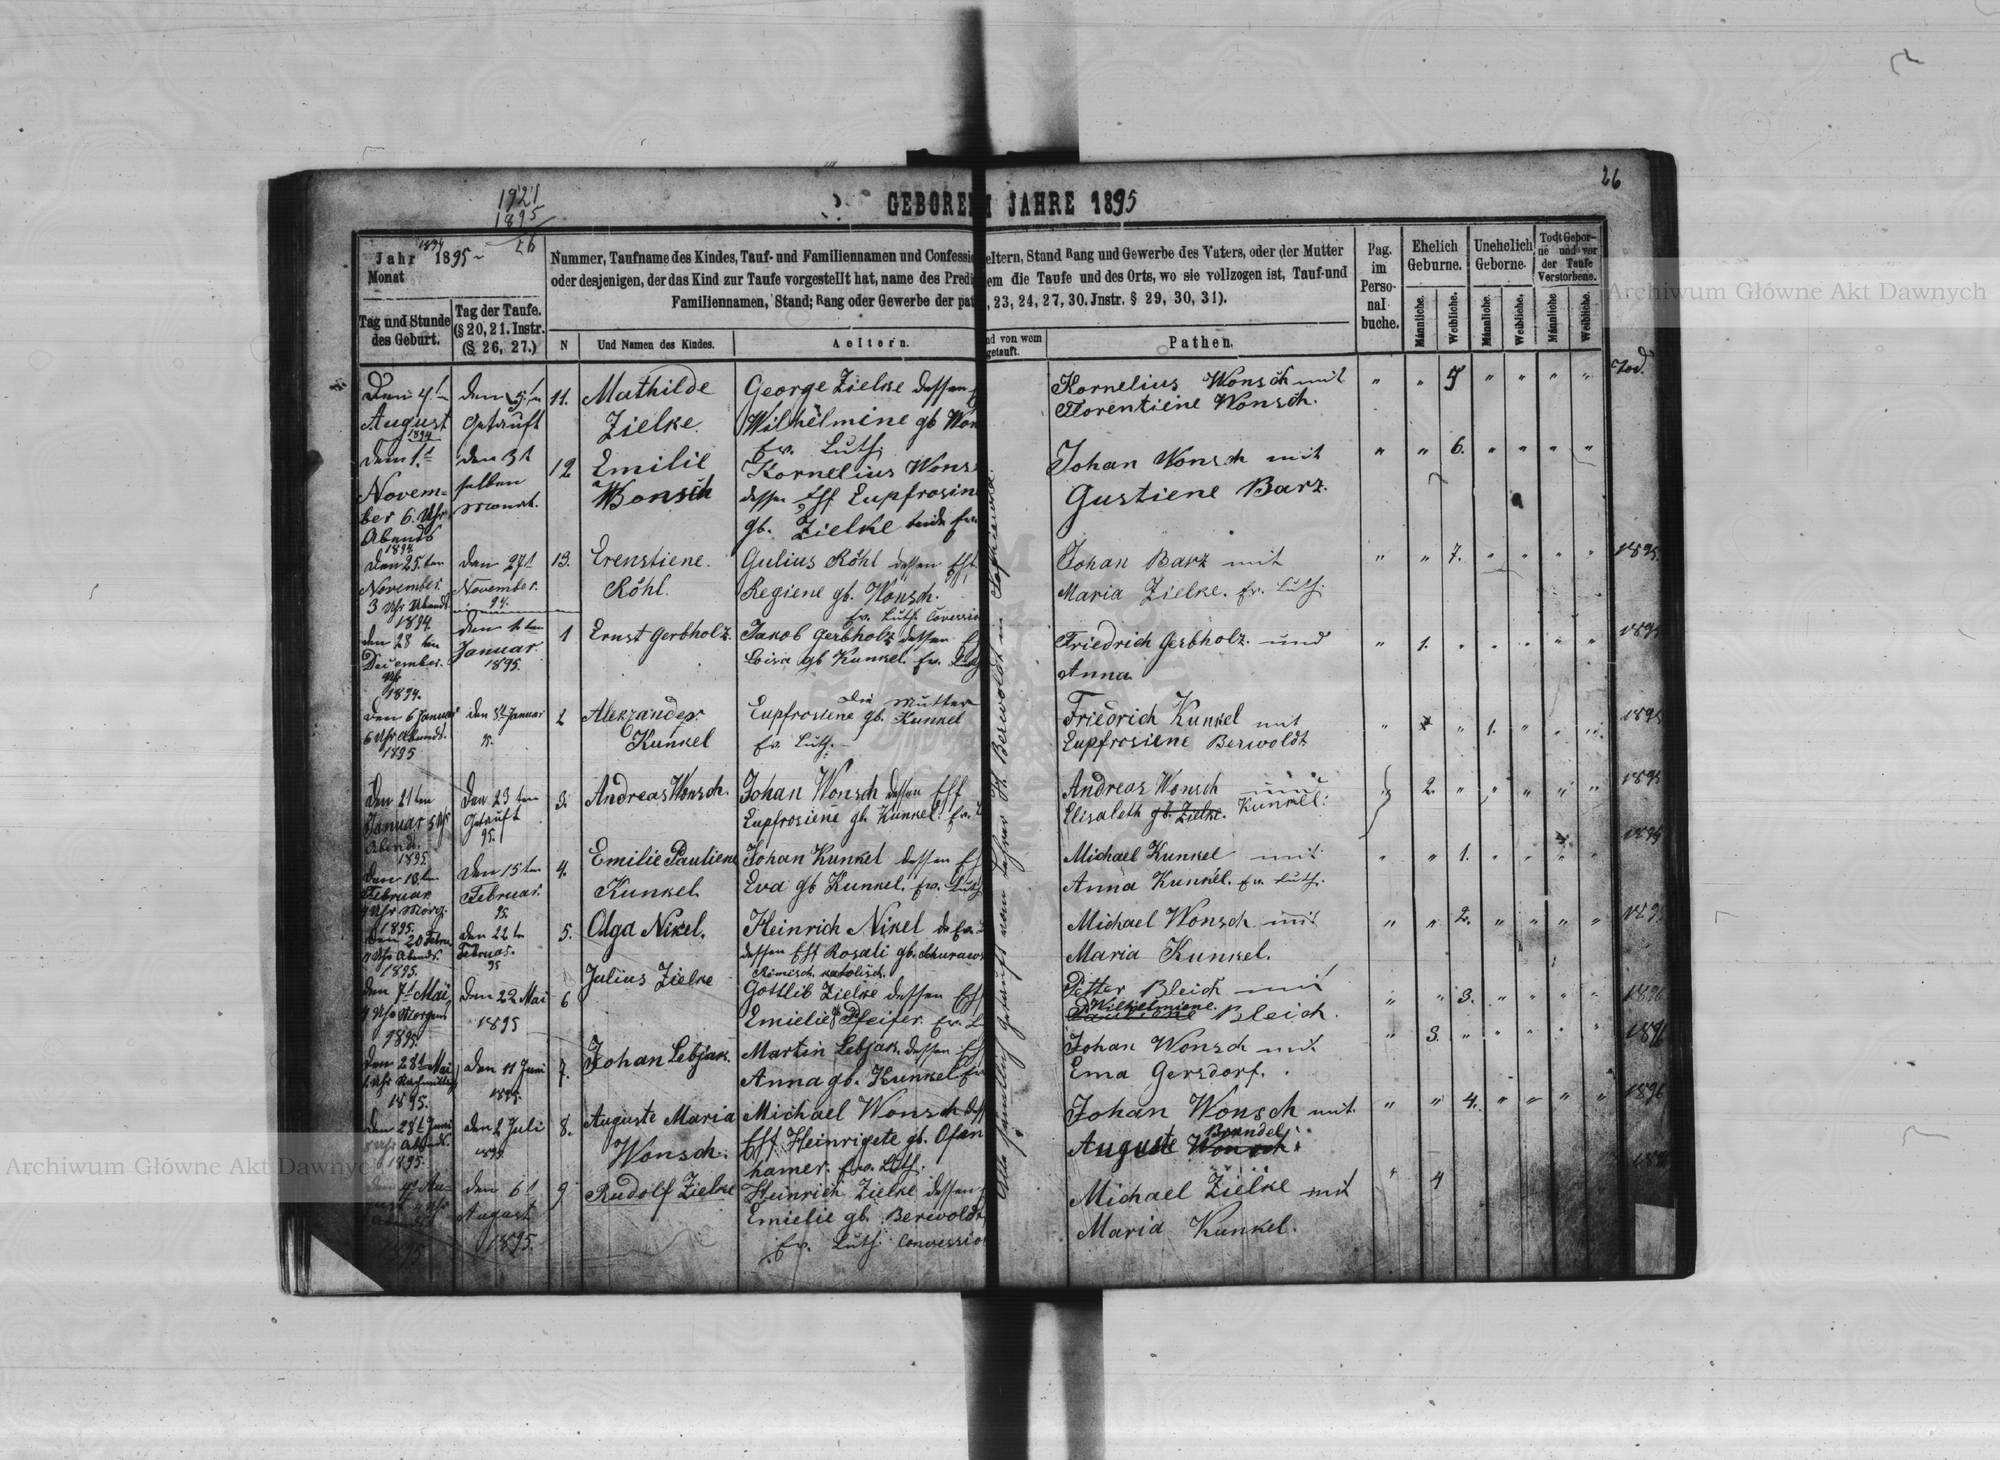 26
1921
1895
26
GEBOREN
JAHRE 1895
Jahr 1894 1895
Monat
Tag und Stunde des Geburt.
Tag der Taufe. (§ 20, 21. Instr. (§ 26, 27.)
Nummer, Taufname des Kindes, Tauf- und Familiennamen und Confessi eltern, Stand Rang und Gewerbe des Vaters, oder der Mutter
oder desjenigen, der das Kind zur Taufe vorgestellt hat, name des Predi em die Taufe und des Orts, wo sie vollzogen ist, Tauf-und
Familiennamen, Stand; Rang oder Gewerbe der pat , 23, 24, 27, 30, Jnstr. § 29, 30, 31).
N
Und Namen des Kindes.
Aeltern.
nd von wem getauft.
Pathen.
Pag. im Perso- nal buche.
Ehelich Geburne.
Unehelich Geborne.
Todt Gebor- ne und vor der Taufe Verstorbene.
Männliche. Weibliche. Männliche. Weibliche. Männliche Weibliche.
Archiwum Główne Akt Dawnych
Den 4t August 1894
den 5t Getauft
11.
Mathilde
Zielke
George Zielke dessen
Wilhelmine gb Won
Ev. Luth
Kornelius Wonsch mit
Florentiene Wonsch.
" " 5 " " " "
Tod.
dem 1t Novem= ber 6. Uhr Abends 1894
den 3t selben Monat.
12
Emilie
Wonsch
Kornelius Wons
dessen Eff Eupfrosin
gb. Zielke beide Ev
Johan Wonsch mit
Gustiene Barz.
" " 6. " " " "
den 25. ten November. 3 Uhr Abends 1894
den 27t November. 94.
13.
Erenstiene.
Röhl.
Gulius Röhl dessen Eff
Regiene gb. Wonsch.
Ev. Luth. Convessio
Johan Barz mit
Maria Zielke. Ev. Luth.
" " 7. " " " "
1895
den 28 ten December. 1894.
den 1. ten Januar 1895.
1
Ernst Gerbholz.
Jakob Gerbholz dessen
Loisa gb Kunkel. Ev. Luth
Friedrich Gerbholz. und
Anna
" 1. " " " " "
1895
den 6 Januar 6 Uhr Abends. 1895
den 8t Januar 95.
2
Alexzander
Kunkel
Die Mutter
Eupfrosiene gb. Kunkel
Ev. Luth.
Friedrich Kunkel mit
Eupfrosiene Berwoldt
" " 1. " " "
1895
den 21ten Januar 5 Uhr Abend. 1895
den 23 ten Getauft 95.
3.
Andreas Wonsch.
Johan Wonsch dessen Eff
Eupfrosiene gb. Kunkel. Ev.
Andreas Wonsch mit
Elisabeth gb. Zielke. Kunkel.
" 2. " " " " "
1895
den 13. ten Februar 9 Uhr Morg. 1895.
den 15ten Februar. 95.
4.
Emilie Pauliene
Kunkel.
Johan Kunkel dessen Eff
Eva gb Kunkel. Ev. Luth
Michael Kunkel mit
Anna Kunkel. Ev. Luth.
" " 1. " " " "
den 20 Februar Uhr Abends. 1895.
den 22 te Februar. 95
5.
Olga Nikel.
Heinrich Nikel
dessen Eff Rosali gb. Schuraws
Römisch katolisch.
Michael Wonsch mit
Maria Kunkel.
" " 2. " " " "
den 7t Mai Uhr Morgens 1895
den 22 Mai 1895
6
Julius Zielke
Gottlib Zielke dessen Eff
Emielie gb Pfeifer. Ev. L
Petter Bleich mit
Wilhelmiene. Bleich.
" " 3. " " " "
1896
den 28t Mai Uhr Nachmittag 1895.
den 11 Juni 1895.
7.
Johan Lebjak.
Martin Lebjak. dessen Eff
Anna gb. Kunkel Ev
Johan Wonsch mit
Ema Gersdorf.
" 3. " " " " "
1896
den 28t Juni Uhr Abends. 1895.
den 2 Juli 1895
8.
Auguste Maria
Wonsch.
Michael Wonsch
Eff Heinrigete gb. Ofen
hamer. Ev. Luth.
Johan Wonsch mit
Brandel
Auguste Wonsch.
" " 4. " " " "
1896
August Uhr Abends 1895
den 6t August 1895.
9
Rudolf Zielke
Heinrich Zielke dessen
Emielie gb. Berwoldt
Ev. Luth. Convessio
Michael Zielke mit
Maria Kunkel.
" 4
Berwoldt in
Archiwum Główne Akt Dawnych